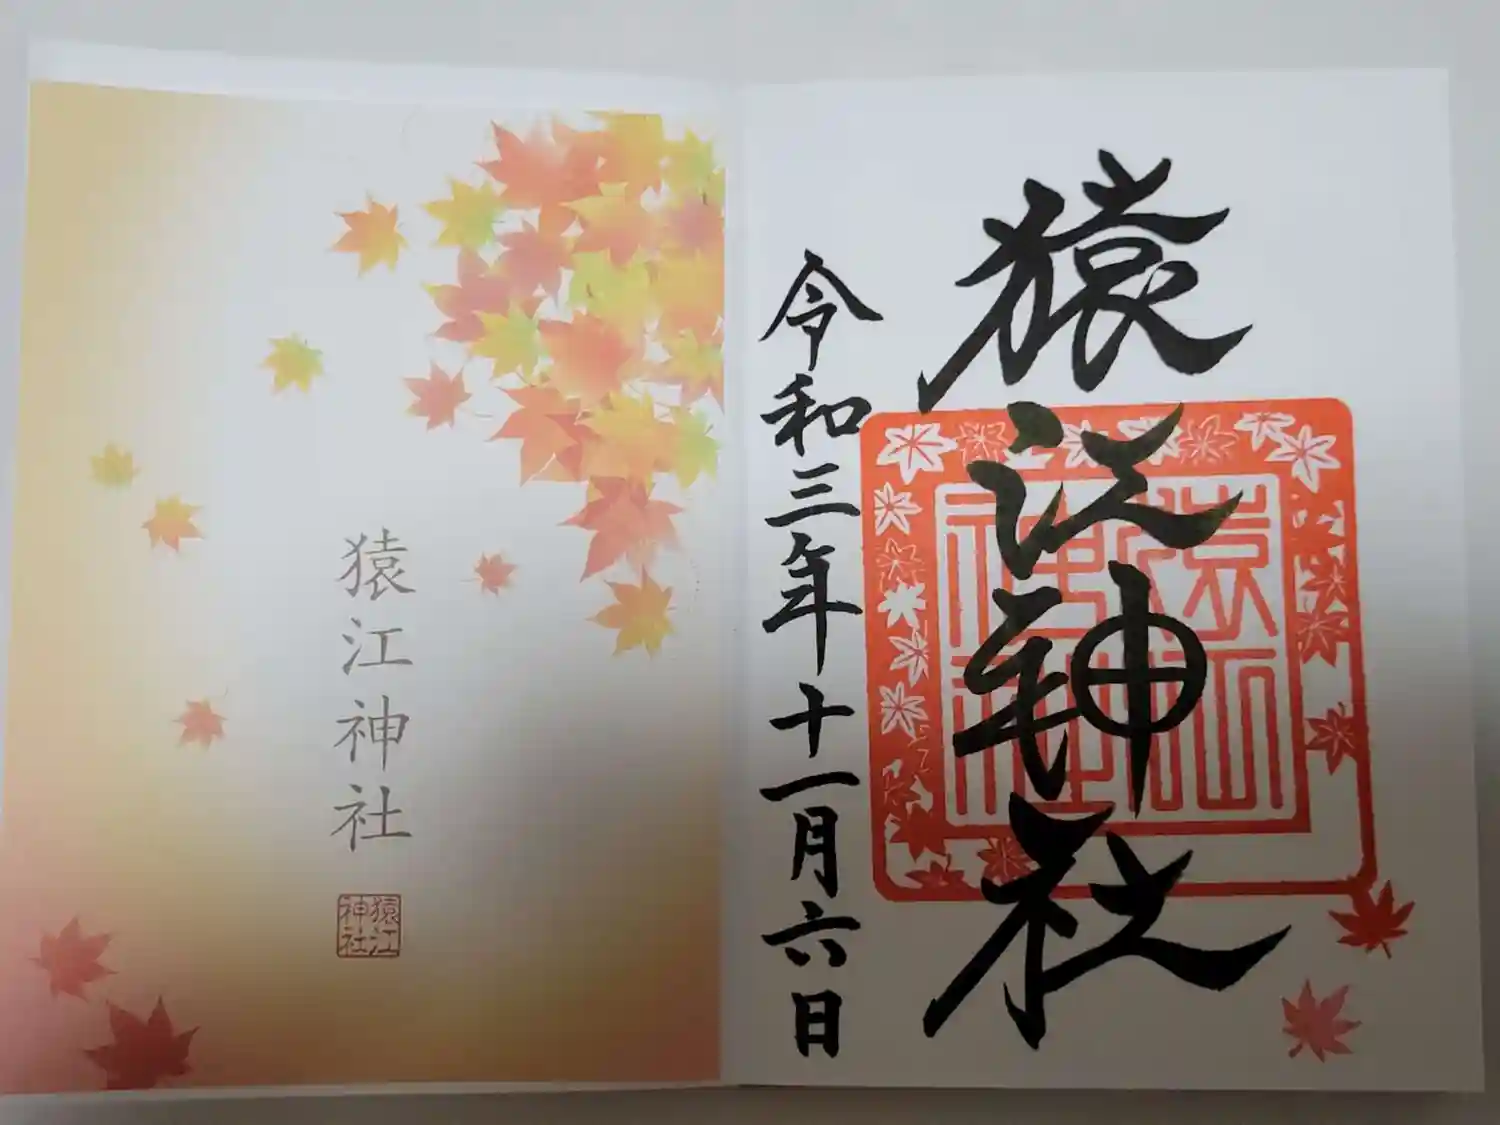 猿江神社
令和三年十一月六日
猿江神社
猿江
神社
猿江
神社